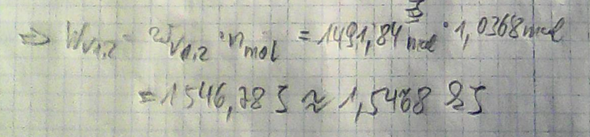 ⇒ W_V1,2 = w_V1,2 · n_mol = 1491,84 J/mol · 1,0368 mol
= 1546,78 J ≈ 1,5468 kJ